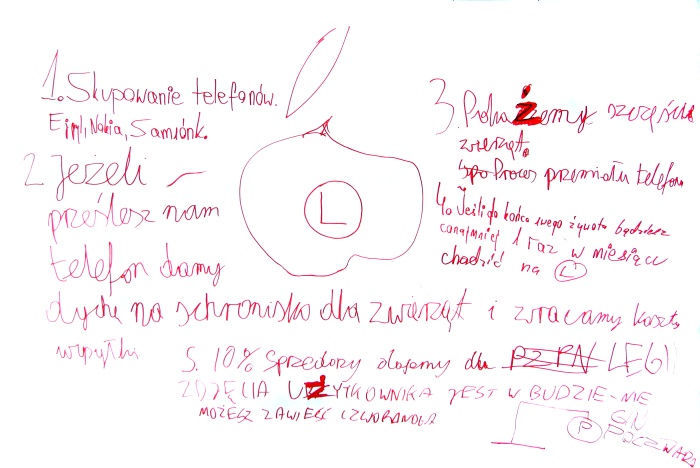 1. Skupowanie telefonów.
Eipl, Nokia, Samsónk.
2. Jeżeli –
prześlesz nam
telefon damy
dychę na schronisko dla zwierząt i zwracamy koszty
wysyłki
L
3. Pokażemy szczęście
zwierząt.
Proces przemiału telefonu
4. Jeśli do końca swego żywota będziesz
conajmniej 1 raz w miesiącu
chodzić na L
5. 10% sprzedaży dajemy dla PZPN LEGII
ZDJĘCIA UŻYTKOWNIKA JEST W BUDZIE - NIE
MOŻESZ ZAWIEŚĆ CZWORONOGA
P